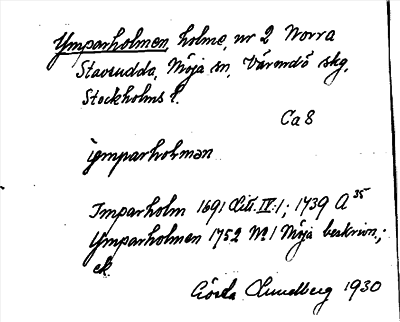 Ymparholmen, holme, nr 2 Norra
Stavsudda, Möja sn, Värmdö skg,
Stockholms l.
Ca 8
ympar holmən
Imparholm 1691 Litt. IV:1; 1739 A 35
Ymparholmen 1752 No 1 Möja beskrivn.;
ek.
Gösta Lundberg 1930